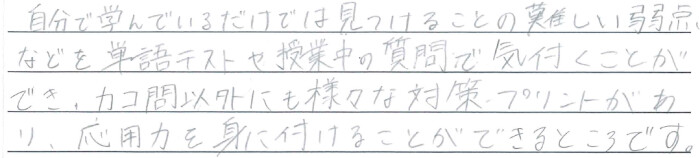 自分で学んでいるだけでは見つけることの難しい弱点
などを単語テストや授業中の質問で気付くことが
でき、カコ問以外にも様々な対策プリントがあ
り、応用力を身に付けることができるところです。